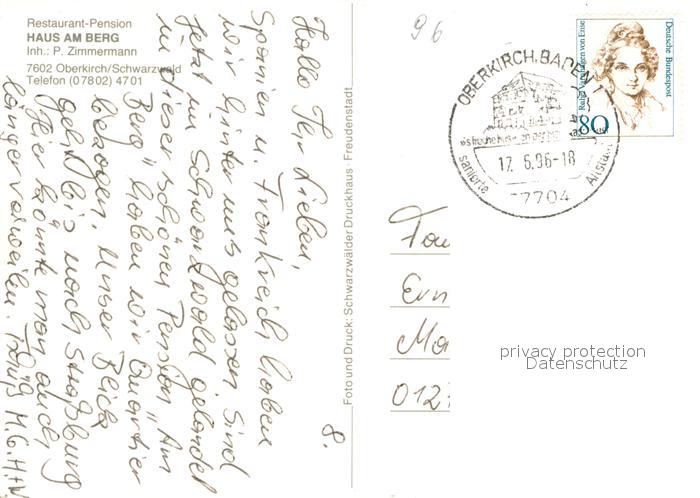 Restaurant-Pension
HAUS AM BERG
Inh.: P. Zimmermann
7602 Oberkirch/Schwarzwald
Telefon (07802) 4701
Hallo Ihr Lieben,
Spanien u. Frankreich haben
wir hinter uns gelassen. Sind
jetzt im Schwarzwald gelandet
in dieser schönen Pension "Am
Berg" haben wir Quartier
bezogen. Unser Blick
geht bis nach Straßburg
Hier könnte man auch
länger verweilen.
Foto und Druck: Schwarzwälder Druckhaus · Freudenstadt
8.
96
OBERKIRCH, BADEN 1
17.6.96-18
sanierte
77704
Deutsche Bundespost
Rahel Varnhagen von Ense
80
Fa
Ma
012
privacy protection
Datenschutz